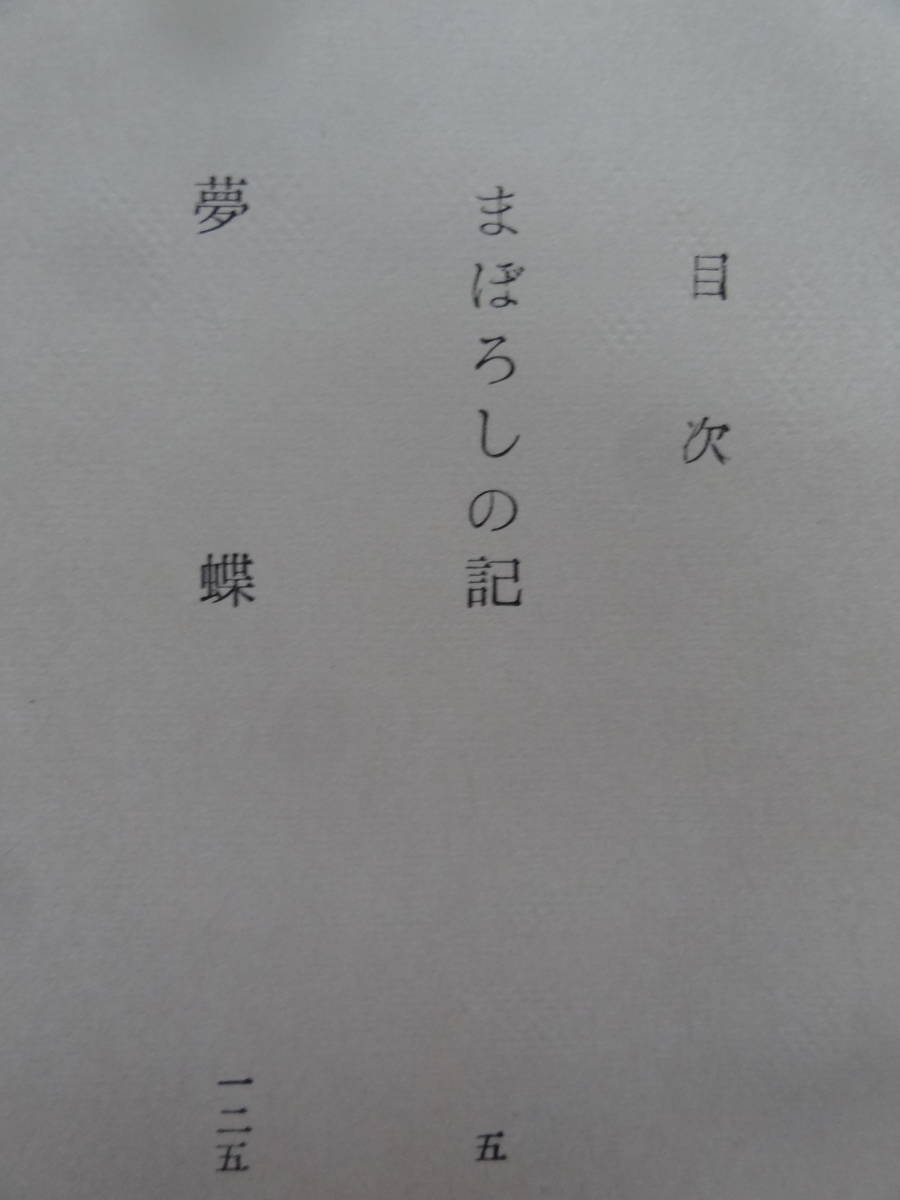 目次
まぼろしの記 五
夢蝶 一二五